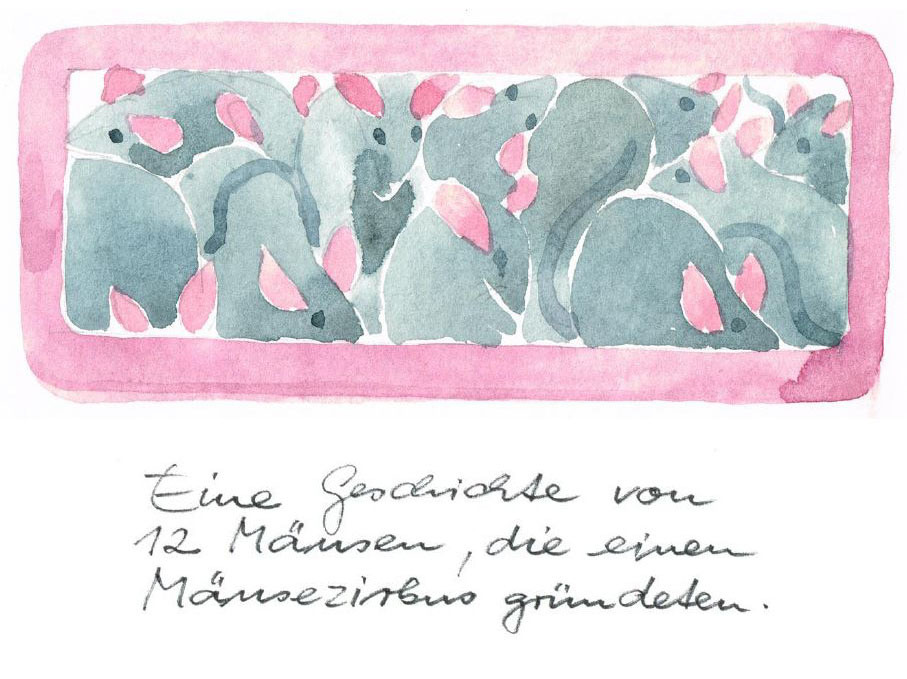 Eine Geschichte von
12 Mäusen, die einen
Mäusezirkus gründeten.